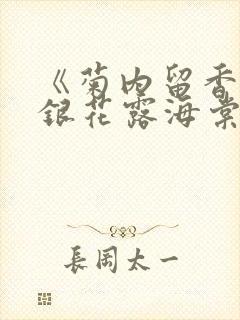 《菊内留香
銀花露海棠
長岡太一